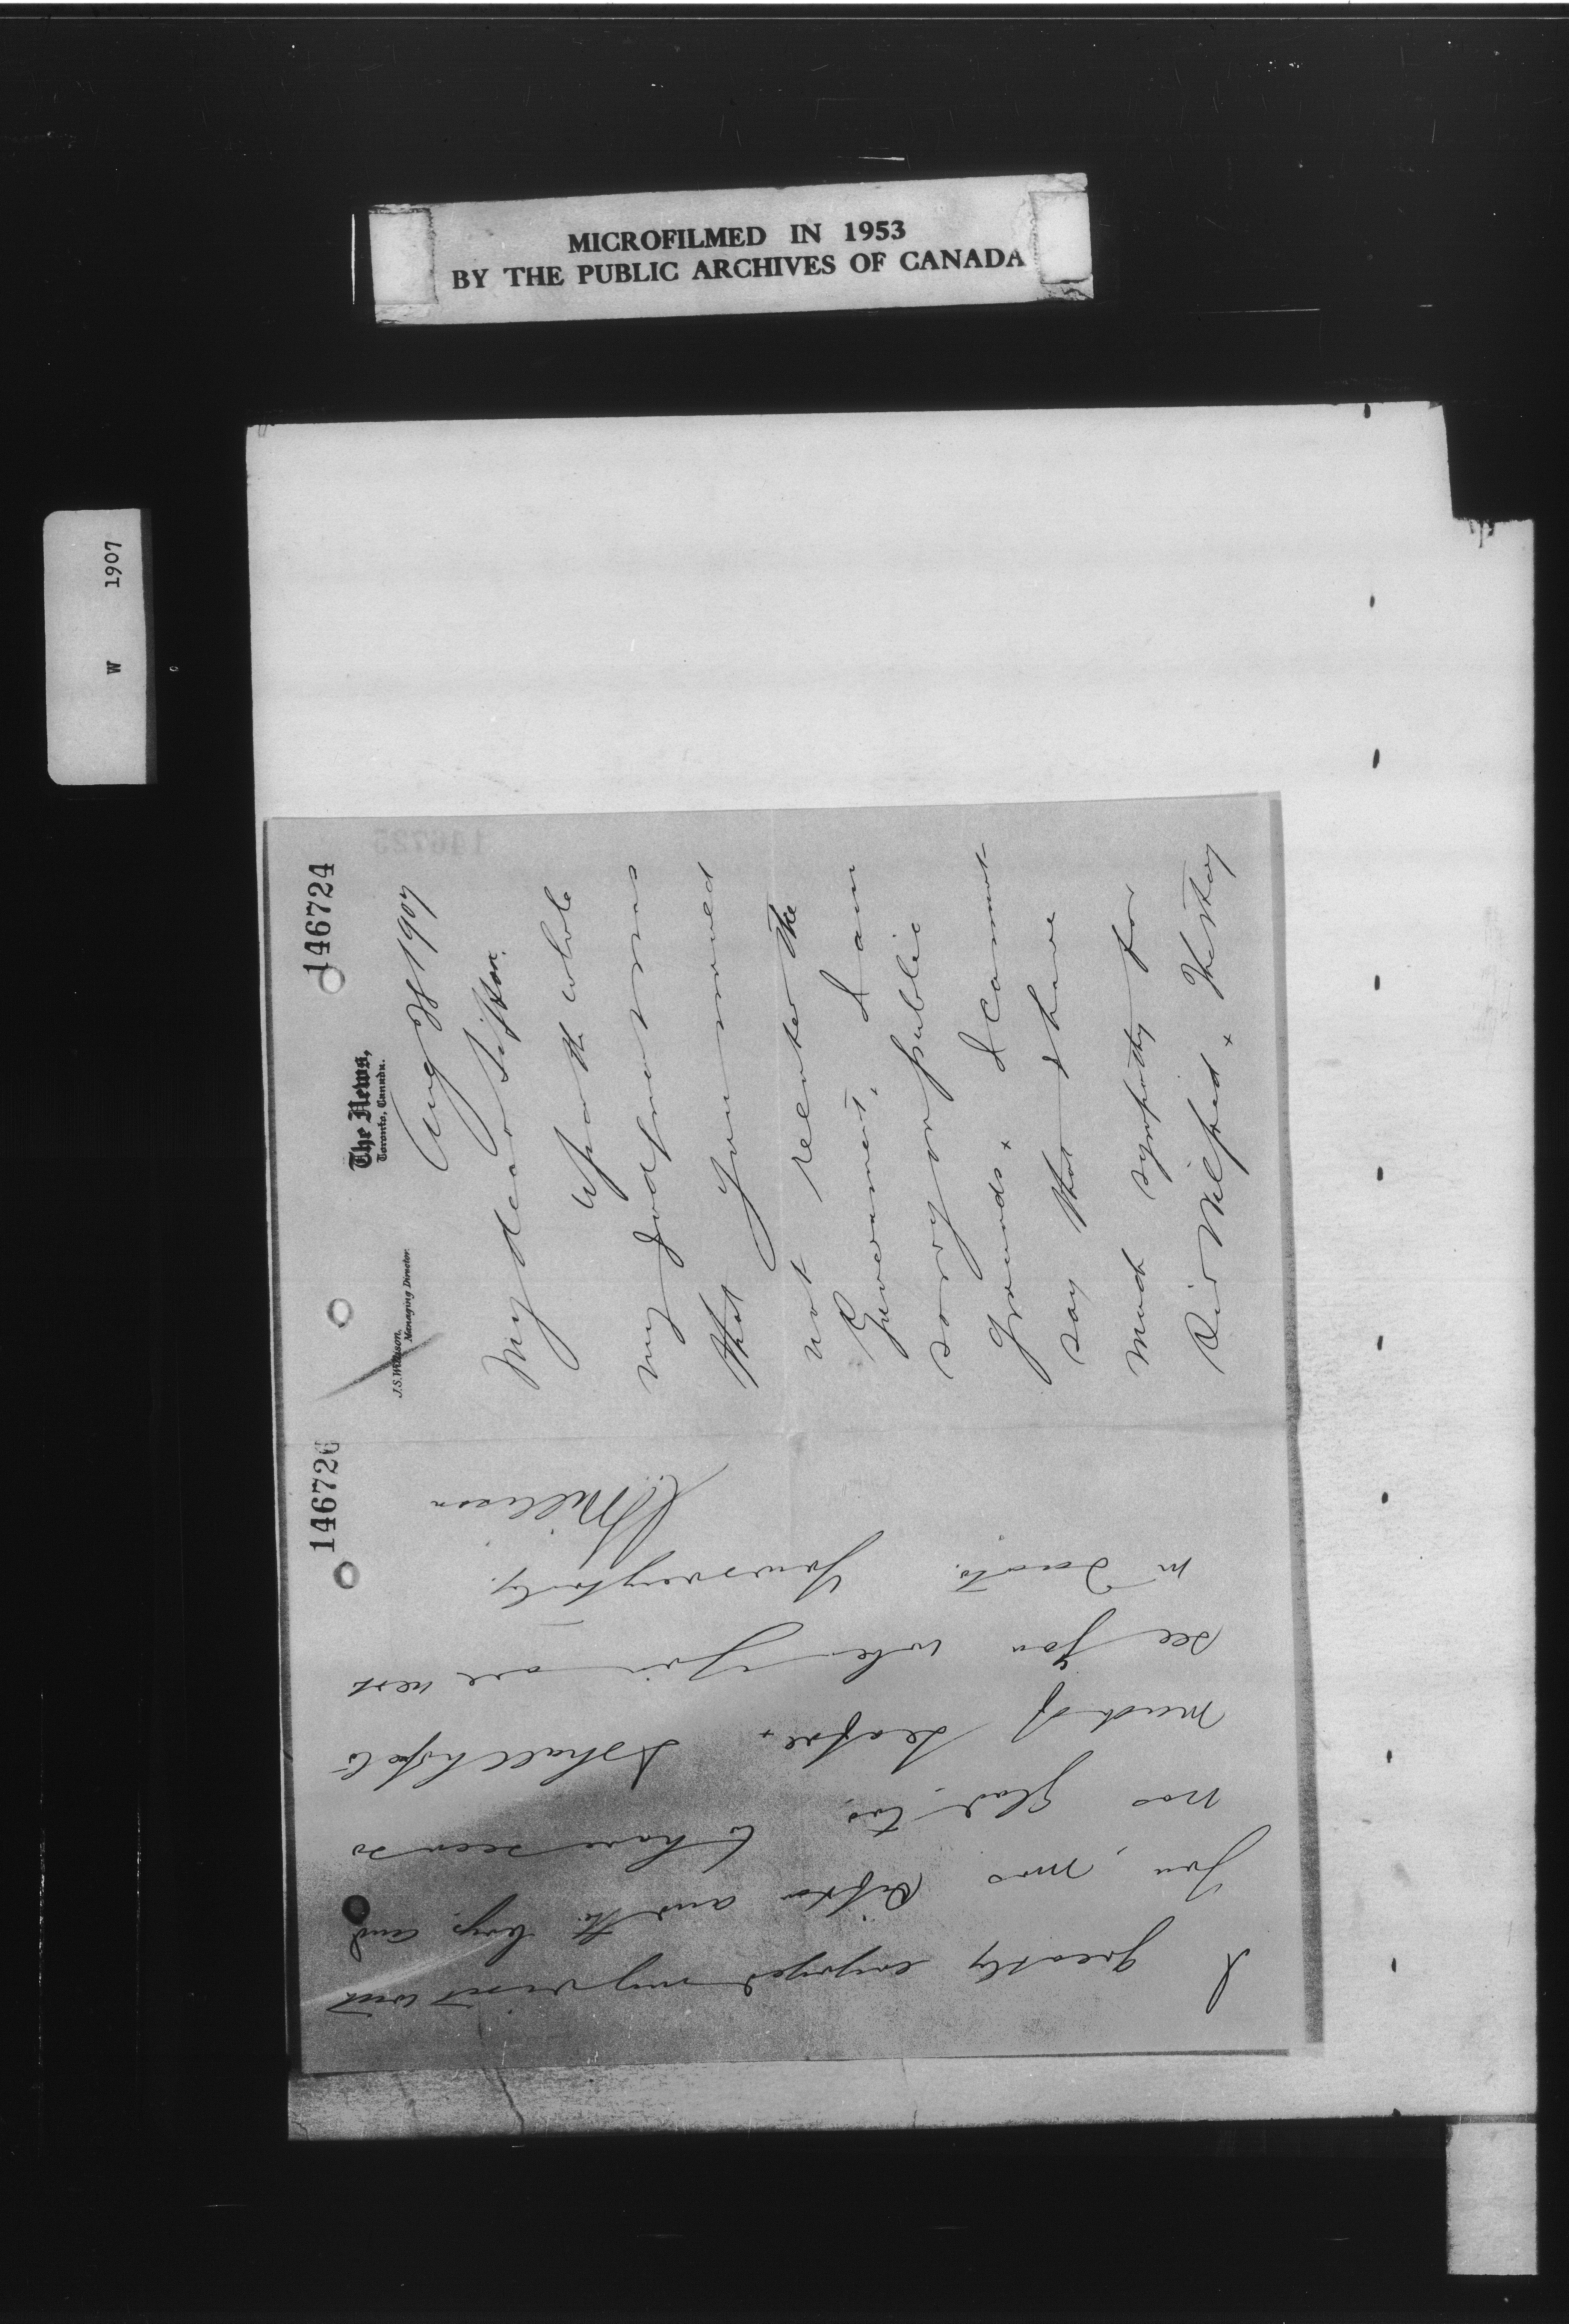 MICROFILMED IN 1953
BY THE PUBLIC ARCHIVES OF CANADA
W 1907
146724
The News,
Toronto, Canada.
J.S. Willison,
Managing Director.
Aug 1907
My dear Sifton.
Upon the whole
my judgment was
that you would
not reenter the
Government. I am
sorry on public
grounds. I cannot
say that I have
much sympathy for
Sir Wilfrid. The story
146726
I greatly enjoyed my visit with
you, Mrs Sifton and the boys, and
was glad, too, to have seen so
much of Leafoe. I shall hope to
see you when you are next
in Toronto.
Yours very truly.
J.S. Willison
146725